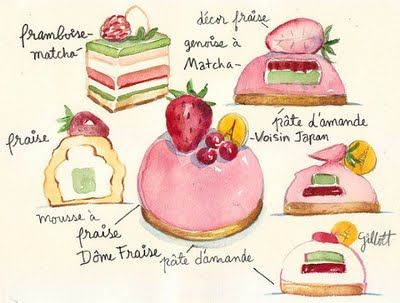 framboise-
matcha
décor fraise
genoise à
Matcha-
fraise
pâte d'amande
-Voisin Japan
mousse à
fraise
Dôme Fraise
pâte d'amande
Gillott